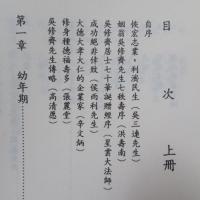 目次 上冊
自序
恢宏志業，利濟民生（吳三連先生）
姻翁吳修齊先生七秩壽序（洪壽南）
吳修齊居士七十華誕贈經序（星雲大法師）
成功絕非倖致（侯雨利先生）
大德大孝大仁的企業家（辛文炳）
修身種德福壽多（張麗堂）
吳修齊先生傳略（高清愿）
第一章 幼年期………………